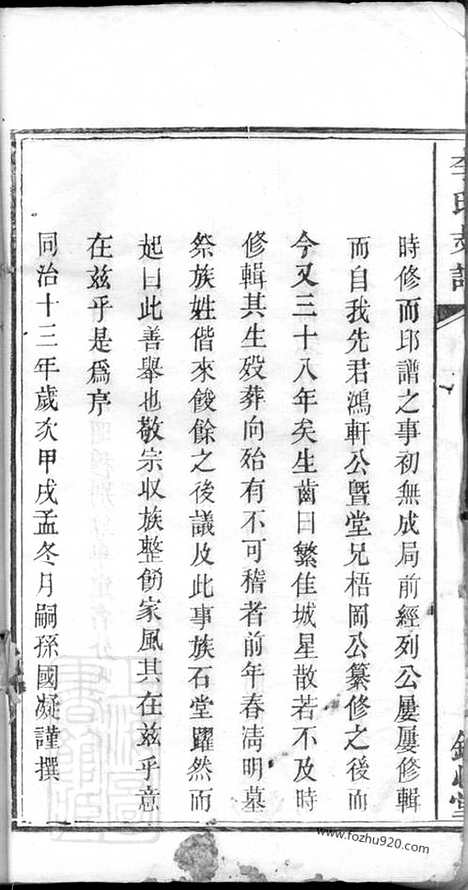 李氏支譜
時修而邱譜之事初無成局前經列公屢屢修輯
而自我先君鴻軒公暨堂兄梧岡公纂修之後而
今又三十八年矣生齒日繁佳城星散若不及時
修輯其生殁葬向殆有不可稽者前年春淸明墓
祭族姓偕來餕餘之後議及此事族石堂躍然而
起曰此善舉也敬宗収族整飭家風其在茲乎意
在茲乎是爲序
同治十三年歲次甲戌孟冬月嗣孫國凝謹撰
www.fozhu920.com